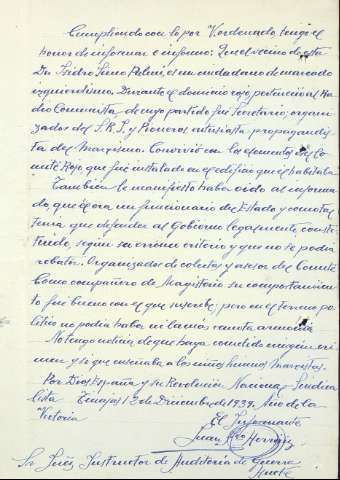 Cumpliendo con lo por V. ordenado tengo el
honor de informar e informo: Que el vecino de esta
Dn. Isidro Peiro, es un ciudadano de marcado
izquierdismo. Durante el dominio rojo, perteneció al Ra-
dio Comunista, de cuyo partido fue Secretario; organi-
zador del S.R.I. y Pioneros, entusiasta propagandis-
ta del Marxismo. Convivió con los elementos del Co-
mité Rojo, que fue instalado en el edificio que él habitaba.
También le manifiesto haber oido al informa-
do, que él era un funcionario del Estado y como tal
tenia que defender al Gobierno legalmente consti-
tuido, según su erróneo criterio y que no se podia
rebatir. Organizador de colectas y asesor del Comité
Como compañero de Magisterio su comportamien-
to fue bueno con el que suscribe; pero en el terreno po-
lítico no podia haber ni la más remota armonía.
No tengo noticia de que haya cometido ningún cri-
men y sí que enseñaba a los niños himnos marxistas.
Por Dios España y su Revolución Nacional Sindica
lista 12 de Diciembre de 1939. Año de la
Victoria
El Informante
Juan
Sr. Juez Instructor de Auditoria de Guerra
Huete